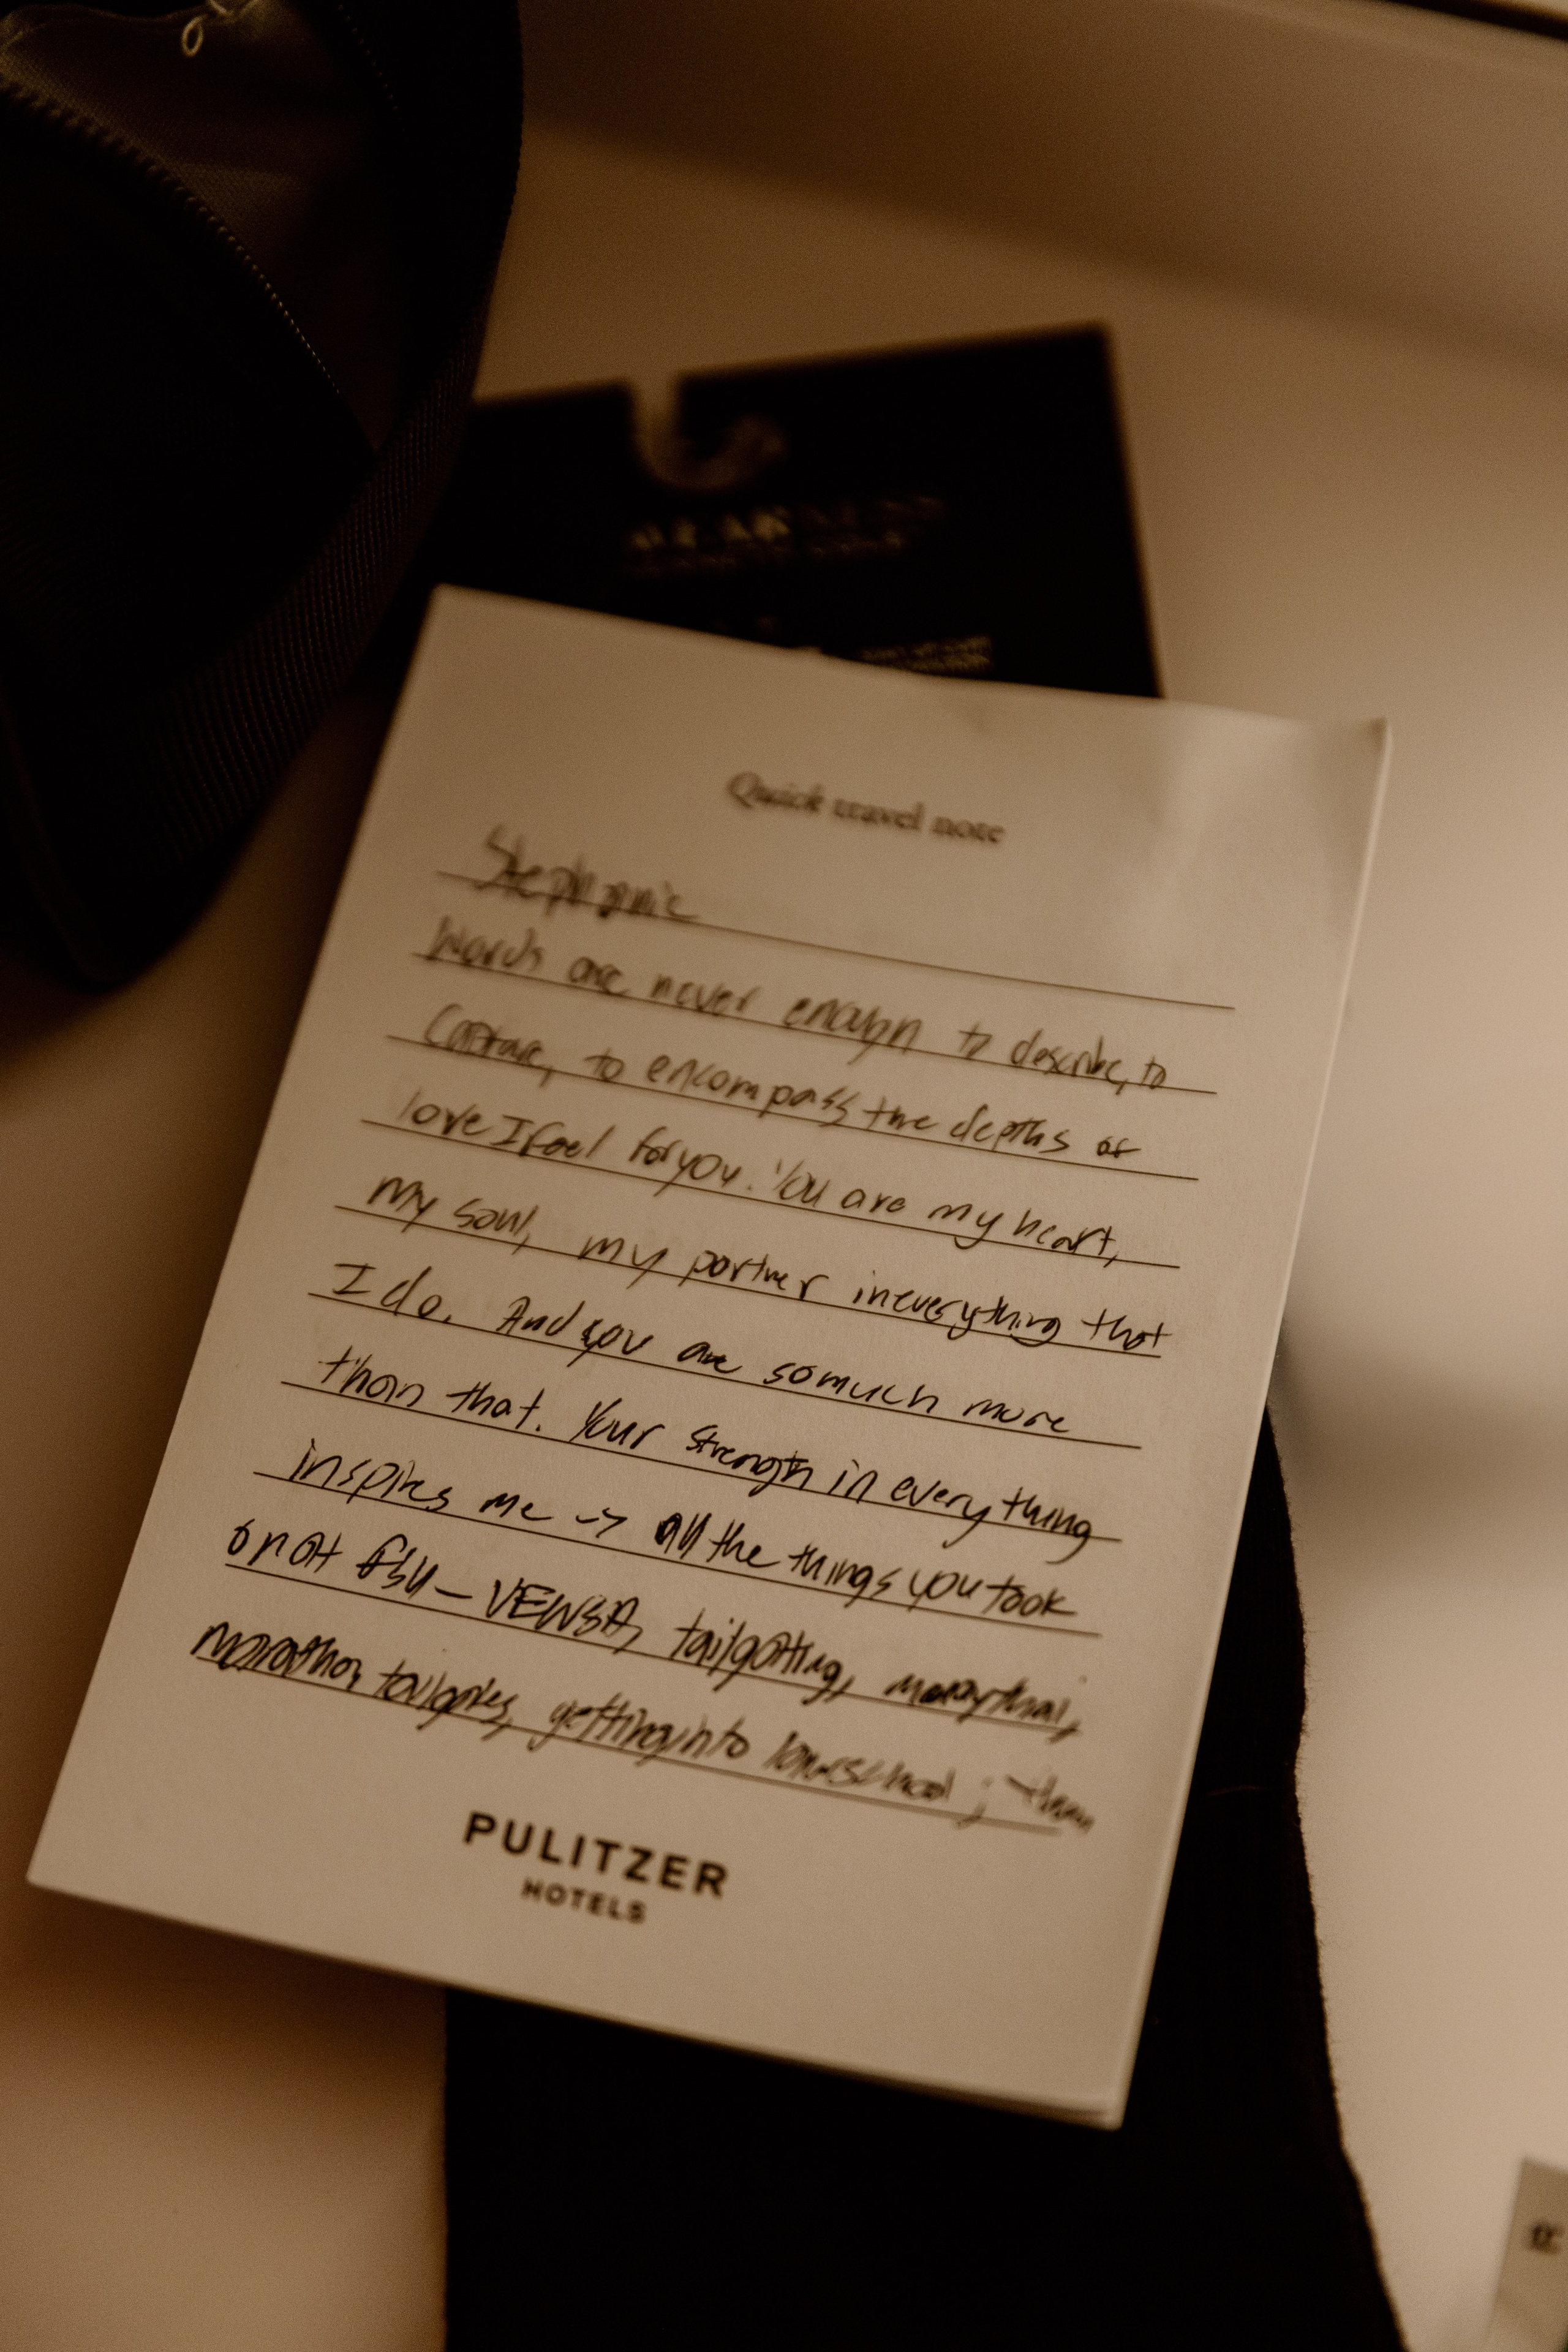 Quick travel note
Stephanie
Words are never enough to describe, to
capture, to encompass the depths of
love I feel for you. You are my heart,
my soul, my partner in everything that
I do. And you are so much more
than that. Your strength in everything
inspires me -> all the things you took
on at FSU - VEWSA, tailgating, muay thai,
marathon, tailgates, getting into law school; then
PULITZER
HOTELS